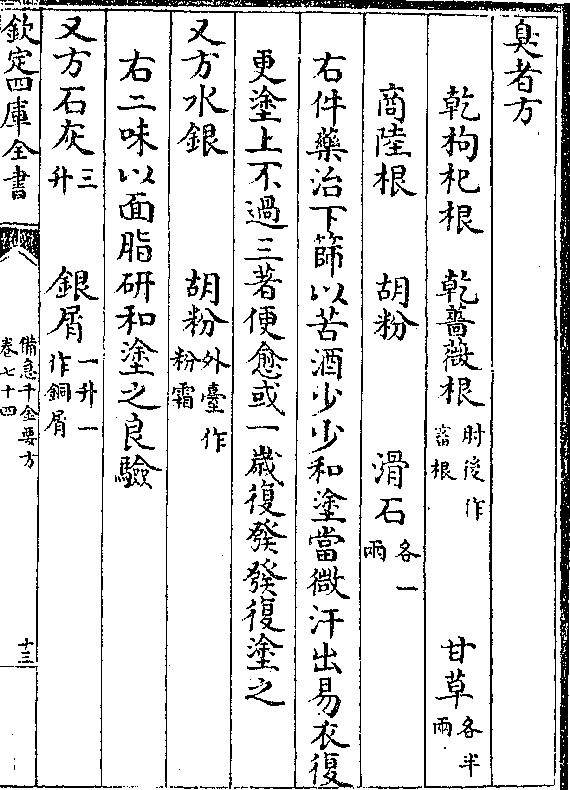 臭者方
乾枸杞根　乾薔薇根肘後作畜根　甘草各半兩
商陸根　胡粉　滑石各一兩
右件藥治下篩以苦酒少少和塗當微汗出易衣復
更塗上不過三著便愈或一歲復發發復塗之
又方水銀　胡粉外臺作粉霜
右二味以面脂研和塗之良驗
又方石灰三升　銀屑一升一作銅屑
欽定四庫全書
備急千金要方
卷七十四
十三